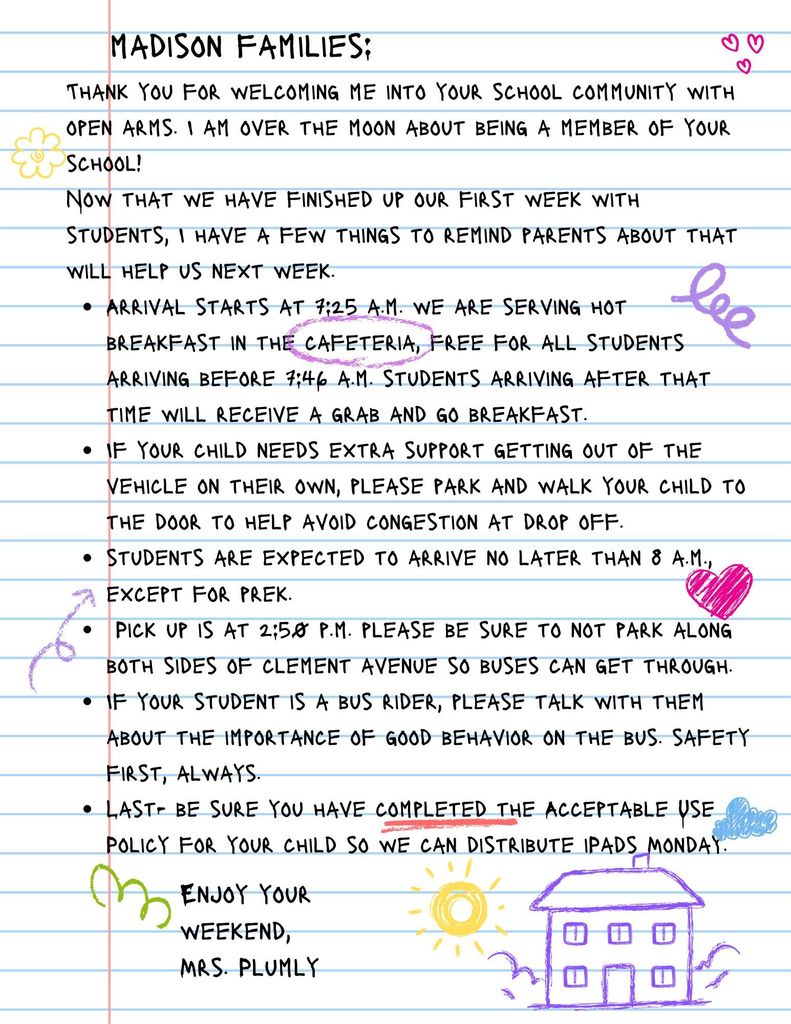 MADISON FAMILIES:
THANK YOU FOR WELCOMING ME INTO YOUR SCHOOL COMMUNITY WITH
OPEN ARMS. I AM OVER THE MOON ABOUT BEING A MEMBER OF YOUR
SCHOOL!
NOW THAT WE HAVE FINISHED UP OUR FIRST WEEK WITH
STUDENTS, I HAVE A FEW THINGS TO REMIND PARENTS ABOUT THAT
WILL HELP US NEXT WEEK.
• ARRIVAL STARTS AT 7:25 A.M. WE ARE SERVING HOT
BREAKFAST IN THE CAFETERIA, FREE FOR ALL STUDENTS
ARRIVING BEFORE 7:46 A.M. STUDENTS ARRIVING AFTER THAT
TIME WILL RECEIVE A GRAB AND GO BREAKFAST.
• IF YOUR CHILD NEEDS EXTRA SUPPORT GETTING OUT OF THE
VEHICLE ON THEIR OWN, PLEASE PARK AND WALK YOUR CHILD TO
THE DOOR TO HELP AVOID CONGESTION AT DROP OFF.
• STUDENTS ARE EXPECTED TO ARRIVE NO LATER THAN 8 A.M.,
EXCEPT FOR PREK.
• PICK UP IS AT 2:50 P.M. PLEASE BE SURE TO NOT PARK ALONG
BOTH SIDES OF CLEMENT AVENUE SO BUSES CAN GET THROUGH.
• IF YOUR STUDENT IS A BUS RIDER, PLEASE TALK WITH THEM
ABOUT THE IMPORTANCE OF GOOD BEHAVIOR ON THE BUS. SAFETY
FIRST, ALWAYS.
• LAST- BE SURE YOU HAVE COMPLETED THE ACCEPTABLE USE
POLICY FOR YOUR CHILD SO WE CAN DISTRIBUTE IPADS MONDAY.
ENJOY YOUR
WEEKEND,
MRS. PLUMLY